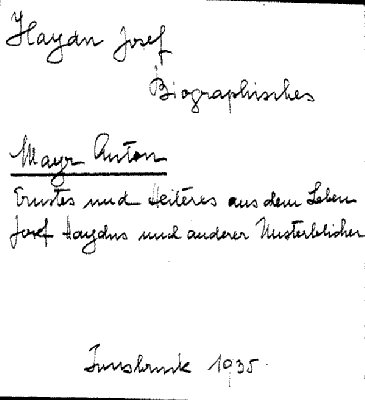 Haydn Josef
Biographisches
Mayr Anton
Ernstes und Heiteres aus dem Leben
Josef Haydns und anderer Unsterblicher
Innsbruck 1935.